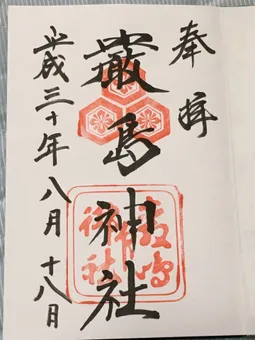 奉拝
嚴島神社
平成三十年八月十八日
嚴嶋神社